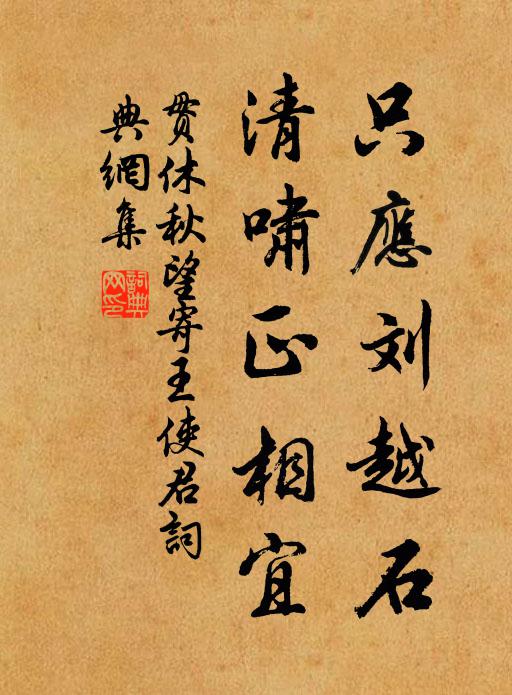 只應刘越石
清嘯正相宜
贯休秋望寄王使君詞
典網集
詞典
网印